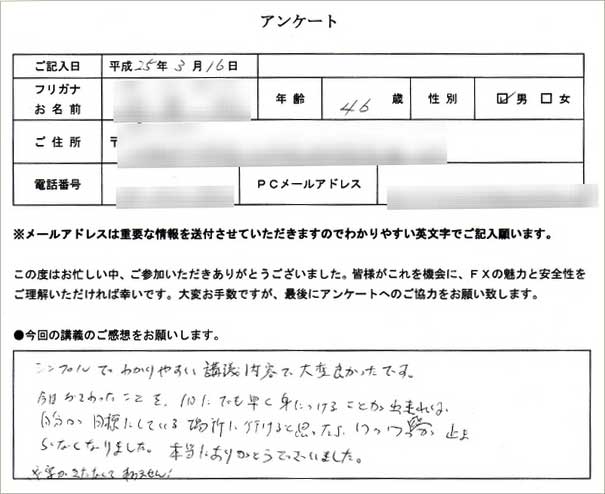 アンケート
ご記入日 平成25年3月16日
フリガナ
お名前 年齢 46 歳 性別 ☑男 □女
ご住所 〒
電話番号 PCメールアドレス
※メールアドレスは重要な情報を送付させていただきますのでわかりやすい英文字でご記入願います。
この度はお忙しい中、ご参加いただきありがとうございました。皆様がこれを機会に、FXの魅力と安全性を
ご理解いただければ幸いです。大変お手数ですが、最後にアンケートへのご協力をお願い致します。
●今回の講義のご感想をお願いします。
シンプルでわかりやすい講議内容で大変良かったです。
今日おそわったことを、1日でも早く身につけることが出来れば
自分が目標にしている場所に行けると思ったら、ワクワク感が止ま
らなくなりました。本当にありがとうございました。
※字がきたなくてすみません!